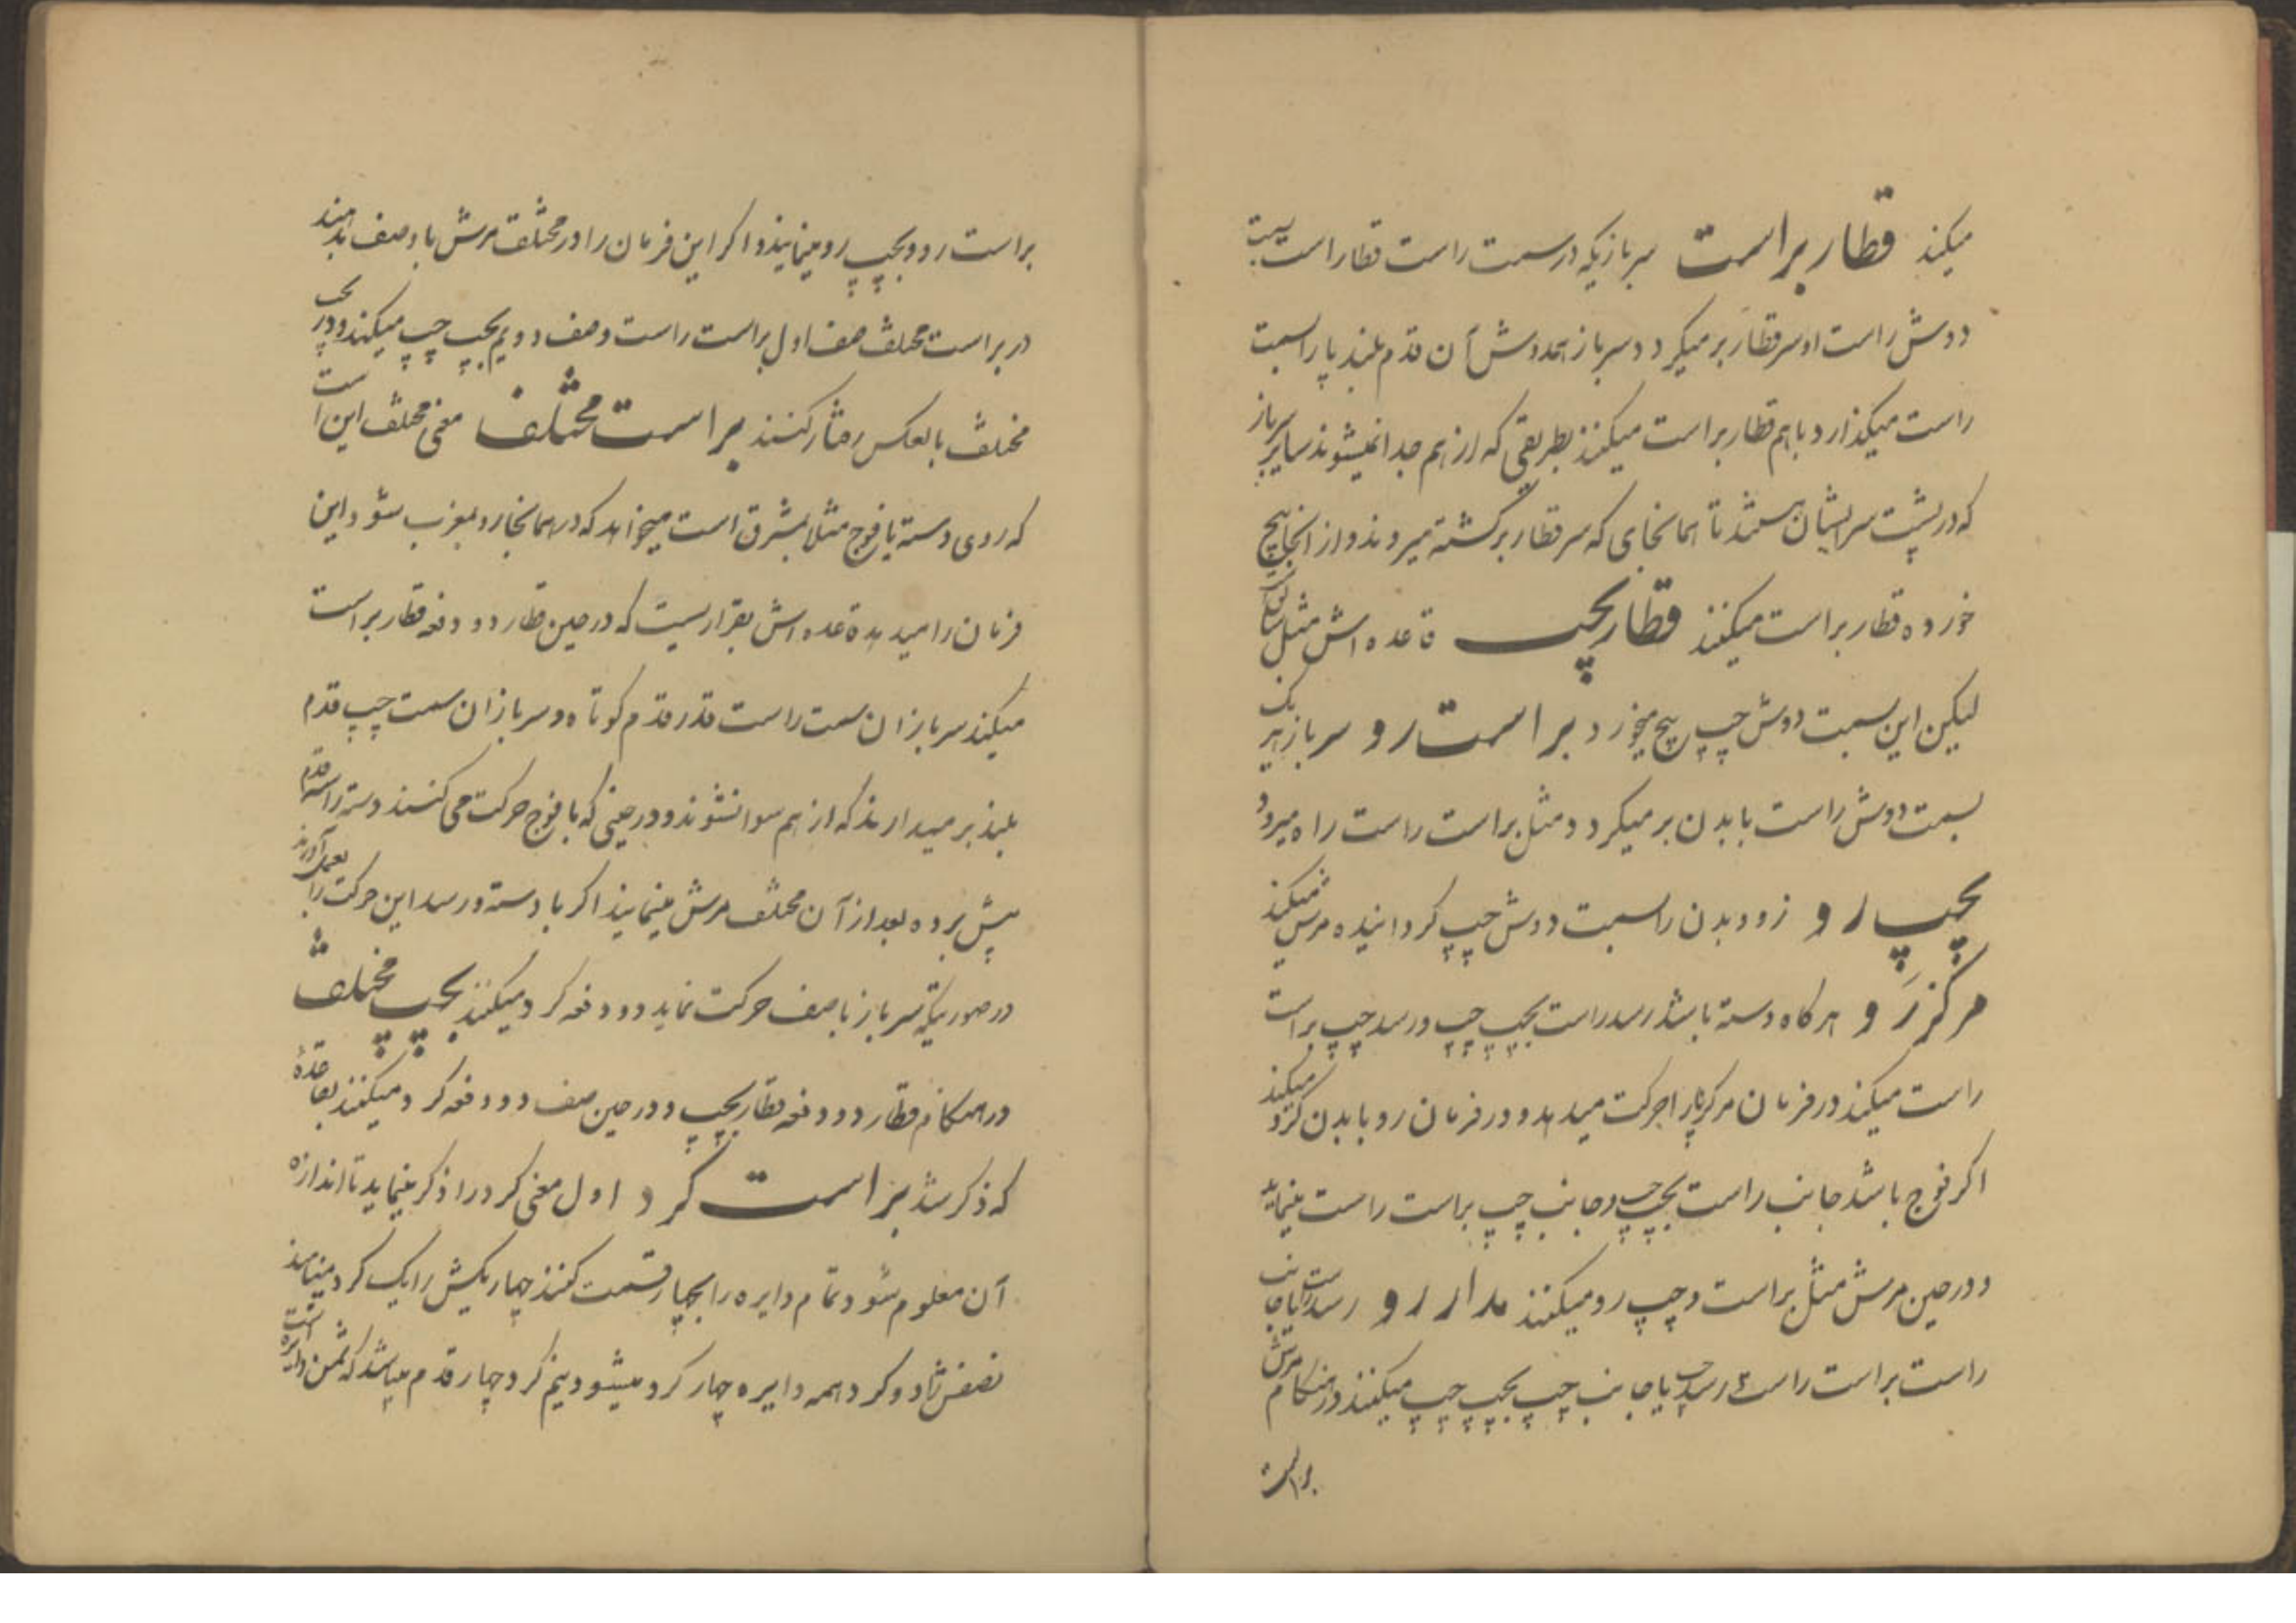 میکند قطار براست سربازیکه در سمت راست قطار است بسمت
دوش راست او سر قطار برمیکردد سرباز همدوش آن قدم بلند پا را بسمت
راست میکذارد با هم قطار براست میکنند بطریقی که از هم جدا نمیشوند سایر سرباز
که در پشت سر ایشان هستند تا همانجای که سر قطار برکشته میروند و از آنجا پیچ
خورده قطار براست میکنند قطار بچپ قاعده اش مثل
لیکن این بسمت دوش چپ پیچ میخورد براست رو سرباز هر یک
بسمت دوش راست با بدن برمیکردد و مثل براست راست راه میرود
بچپ رو زود بدن را بسمت دوش چپ کردانیده مرش میکند
مرکز رو هر کاه دسته باشد رسد راست بچپ چپ و رسد چپ براست
راست میکند در فرمان مرکز پا را حرکت میدهد و در فرمان رو با بدن کرد میکند
اکر فوج باشد جانب راست بچپ چپ و جانب چپ براست راست مینماید
و در حین مرش مثل براست و چپ رو میکنند مدار رو رسد راست یا جانب
راست براست راست رسد چپ یا جانب چپ بچپ چپ میکنند در هنکام مرش
براست
براست رو و بچپ رو مینمایند و اکر این فرمان را در مختلف مرش با دو صف بدهند
در براست مختلف صف اول براست راست و صف دویم بچپ چپ میکنند و در بچپ
مختلف بالعکس رفتار کنند براست مختلف معنی مختلف این است
که روی دسته یا فوج مثلا بمشرق است میخواهد که در همانجا رو بمغرب شود این
فرمان را میدهد قاعده اش بقراریست که در حین قطار دو دفعه قطار براست
میکند سربازان سمت راست قدر قدم کوتاه و سربازان سمت چپ قدم
بلند برمیدارند که از هم سوا نشوند و در حینی که با فوج حرکت می کنند دسته را سه قدم
پیش برده بعد از آن مختلف مرش مینمایند اکر با دسته و رسد این حرکت را بعمل آورند
در صورتیکه سرباز با صف حرکت نماید دو دفعه کرد میکنند بچپ مختلف
در هنکام قطار دو دفعه قطار بچپ و در حین صف دو دفعه کرد میکنند بقاعدۀ
که ذکر شد براست کرد اول معنی کرد را ذکر مینماید تا اندازه
آن معلوم شود تمام دایره را بچهار قسمت کنند چهار یکش را یک کرد مینامند
نصفش را دو کرد همه دایره چهار کرد میشود نیم کرد چهار قدم میباشد که ثمن دایره است